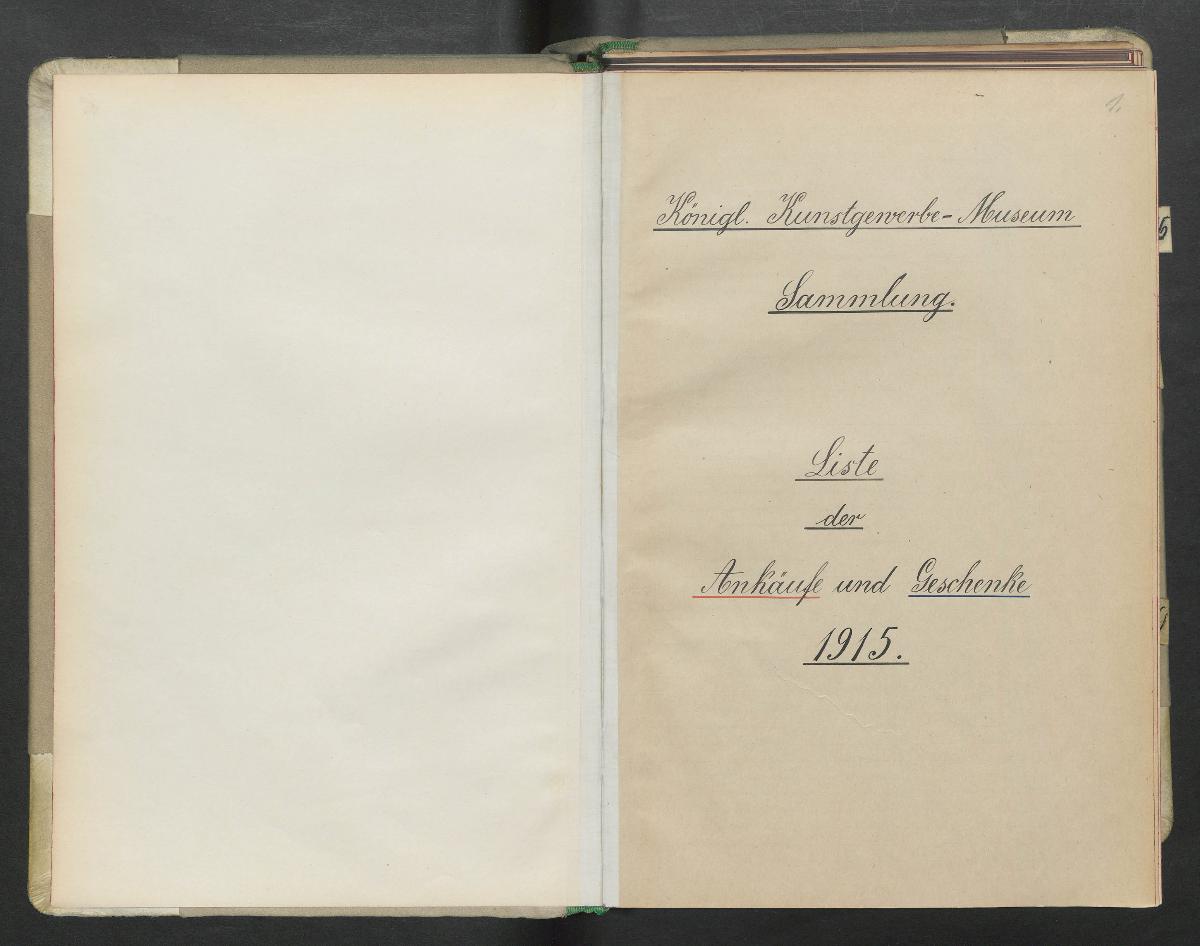 1.
Königl. Kunstgewerbe-Museum
Sammlung.
Liste
der
Ankäufe und Geschenke
1915.
5